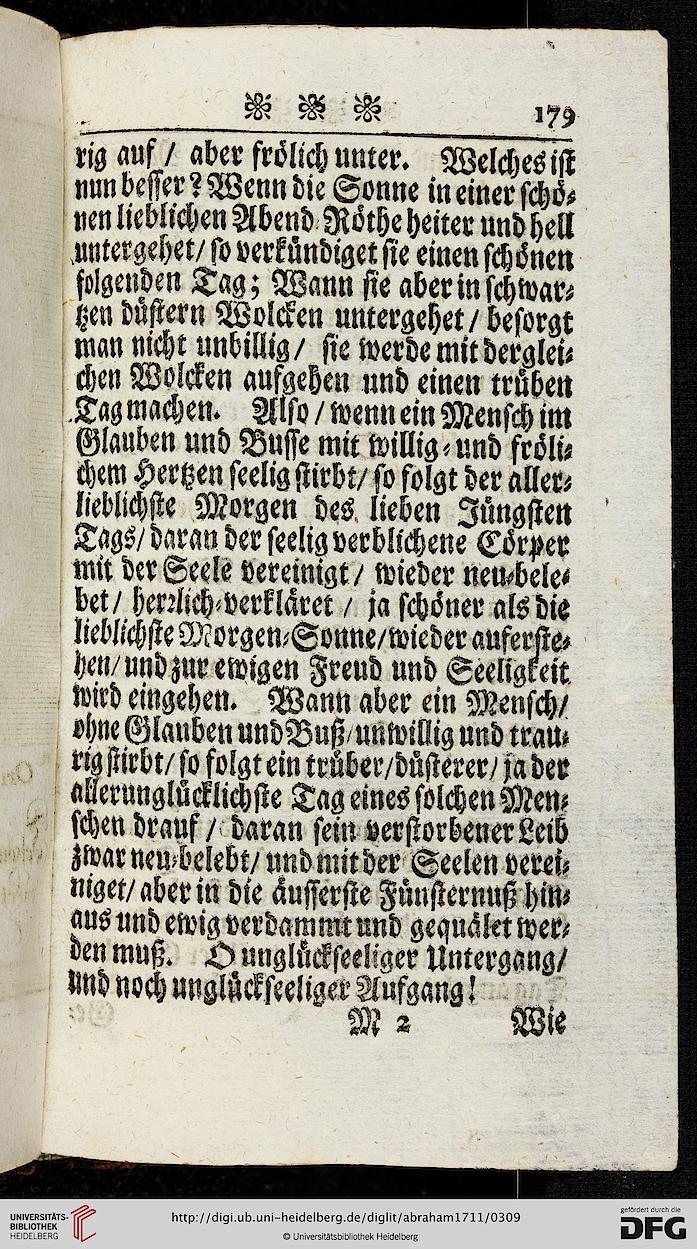 179
rig auf / aber frölich unter. Welches ist
nun besser? Wenn die Sonne in einer schö⸗
nen lieblichen Abend⸗Röthe heiter und hell
untergehet/ so verkündiget sie einen schönen
folgenden Tag; Wann sie aber in schwar⸗
tzen düstern Wolcken untergehet / besorgt
man nicht unbillig / sie werde mit derglei⸗
chen Wolcken aufgehen und einen trüben
Tag machen. Also / wenn ein Mensch im
Glauben und Busse mit willig⸗und fröli⸗
chem Hertzen seelig stirbt/ so folgt der aller⸗
lieblichste Morgen des lieben Jüngsten
Tags/ daran der seelig verblichene Cörper
mit der Seele vereinigt / wieder neu⸗bele⸗
bet / herꝛlich⸗verkläret / ja schöner als die
lieblichste Morgen⸗Sonne/wieder auferste⸗
hen/ und zur ewigen Freud und Seeligkeit
wird eingehen. Wann aber ein Mensch/
ohne Glauben und Buß/ unwillig und trau⸗
rig stirbt/ so folgt ein trüber/düsterer/ ja der
allerunglücklichste Tag eines solchen Men⸗
schen drauf / daran sein verstorbener Leib
zwar neu⸗belebt/ und mit der Seelen verei⸗
niget/ aber in die äusserste Fünsternuß hin⸗
aus und ewig verdammt und gequälet wer⸗
den muß. O unglückseeliger Untergang/
und noch unglückseeliger Aufgang!
M 2 Wie
UNIVERSITÄTS-
BIBLIOTHEK
HEIDELBERG
http://digi.ub.uni-heidelberg.de/diglit/abraham1711/0309
© Universitätsbibliothek Heidelberg
gefördert durch die
DFG